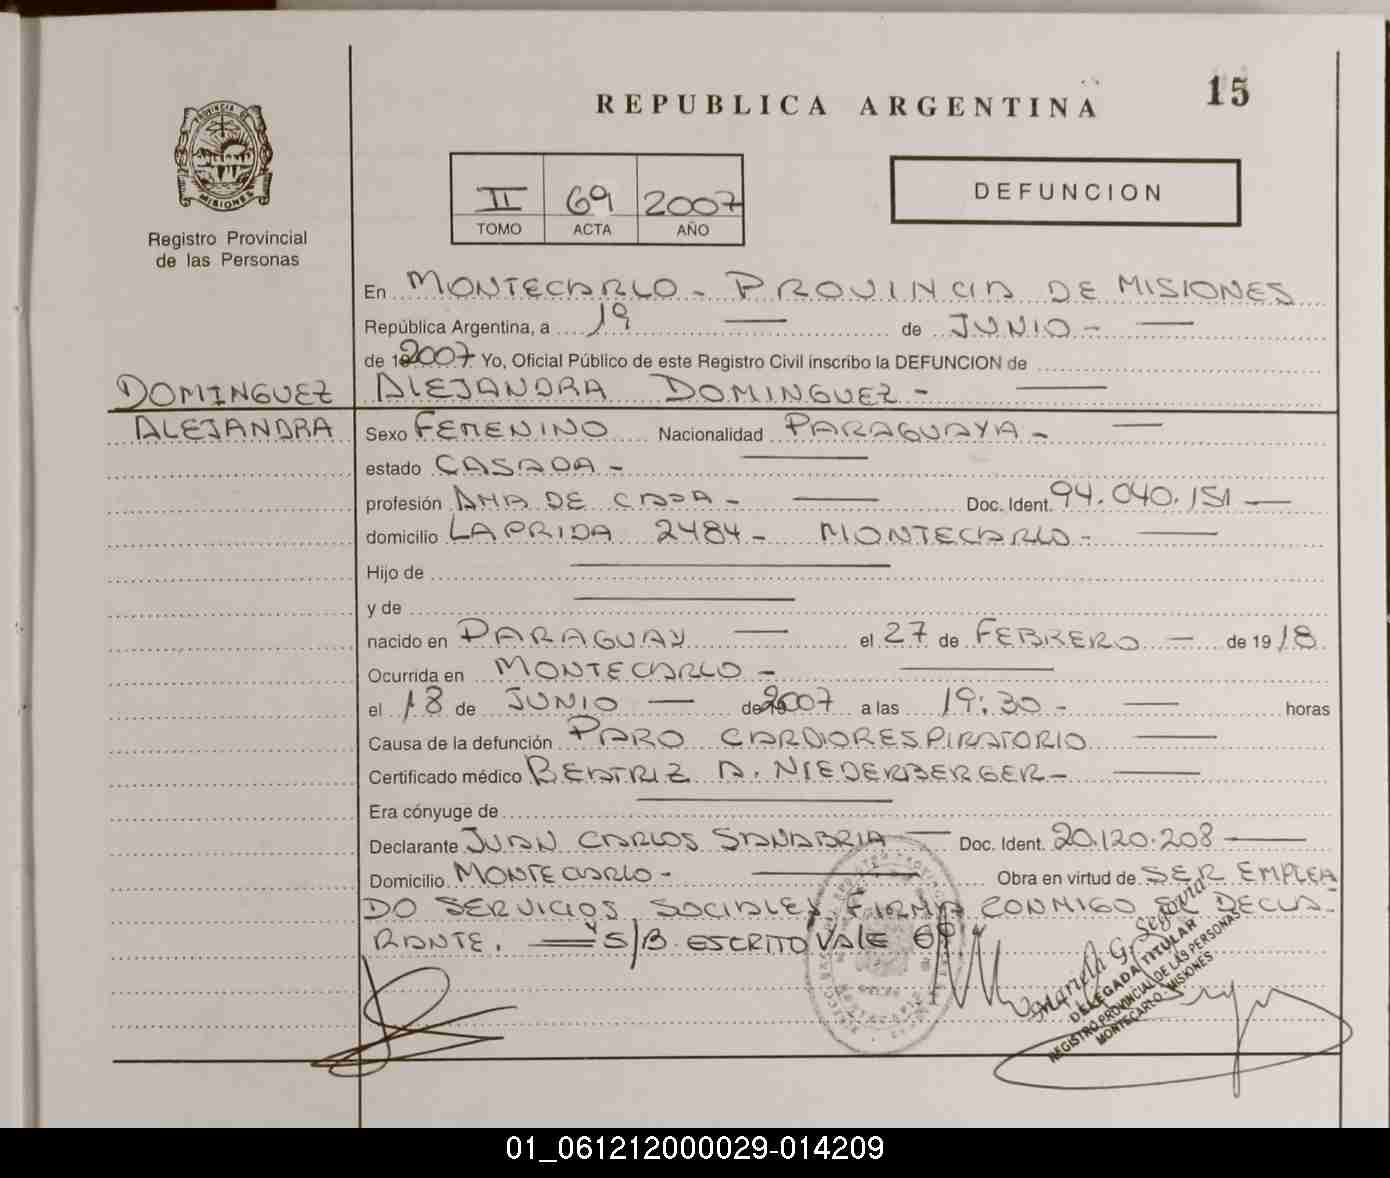 REPUBLICA ARGENTINA
15
PROVINCIA DE
MISIONES
Registro Provincial
de las Personas
II 69 2007
TOMO ACTA AÑO
DEFUNCION
En MONTECARLO - PROVINCIA DE MISIONES
República Argentina, a 19 de JUNIO -
de 2007 Yo, Oficial Público de este Registro Civil inscribo la DEFUNCION de
DOMINGUEZ ALEJANDRA DOMINGUEZ -
ALEJANDRA Sexo FEMENINO Nacionalidad PARAGUAYA -
estado CASADA -
profesión AMA DE CASA - Doc. Ident. 94.040.151
domicilio LAPRIDA 2484 - MONTECARLO -
Hijo de
y de
nacido en PARAGUAY el 27 de FEBRERO - de 1918
Ocurrida en MONTECARLO -
el 18 de JUNIO de 2007 a las 19:30 - horas
Causa de la defunción PARO CARDIORESPIRATORIO
Certificado médico BEATRIZ A. NIEDERBERGER -
Era cónyuge de
Declarante JUAN CARLOS SANABRIA Doc. Ident. 20.120.208
Domicilio MONTECARLO - Obra en virtud de SER EMPLEA
DO SERVICIOS SOCIALES, FIRMA CONMIGO EL DECLA-
RANTE. S/B. ESCRITO VALE 69
Mariela G. Segovia
DELEGADA TITULAR
REGISTRO PROVINCIAL DE LAS PERSONAS
MONTECARLO - MISIONES
01_061212000029-014209